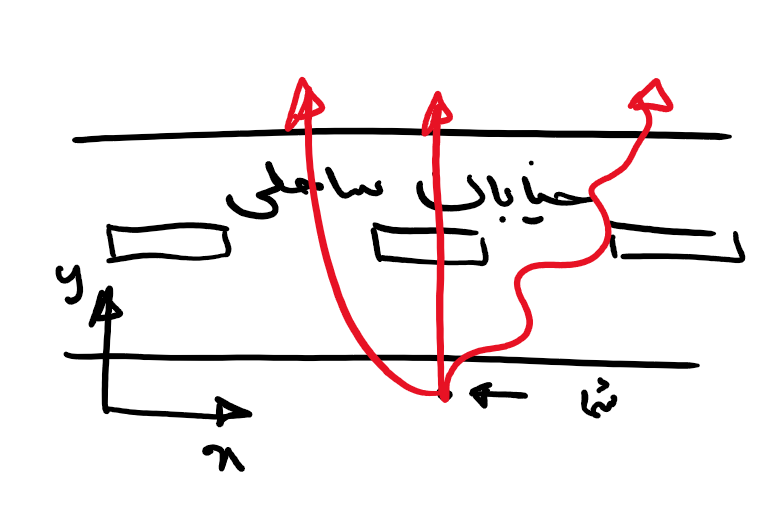 خیابان ساحلی
y
x